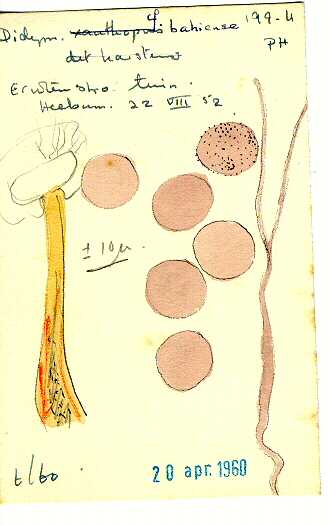 Didym. xanthopus bahiense 199-4
det PH
Erwtenstro. tuin.
Heelsum. 22 VIII 52
± 10 µ.
t/to
20 apr. 1960